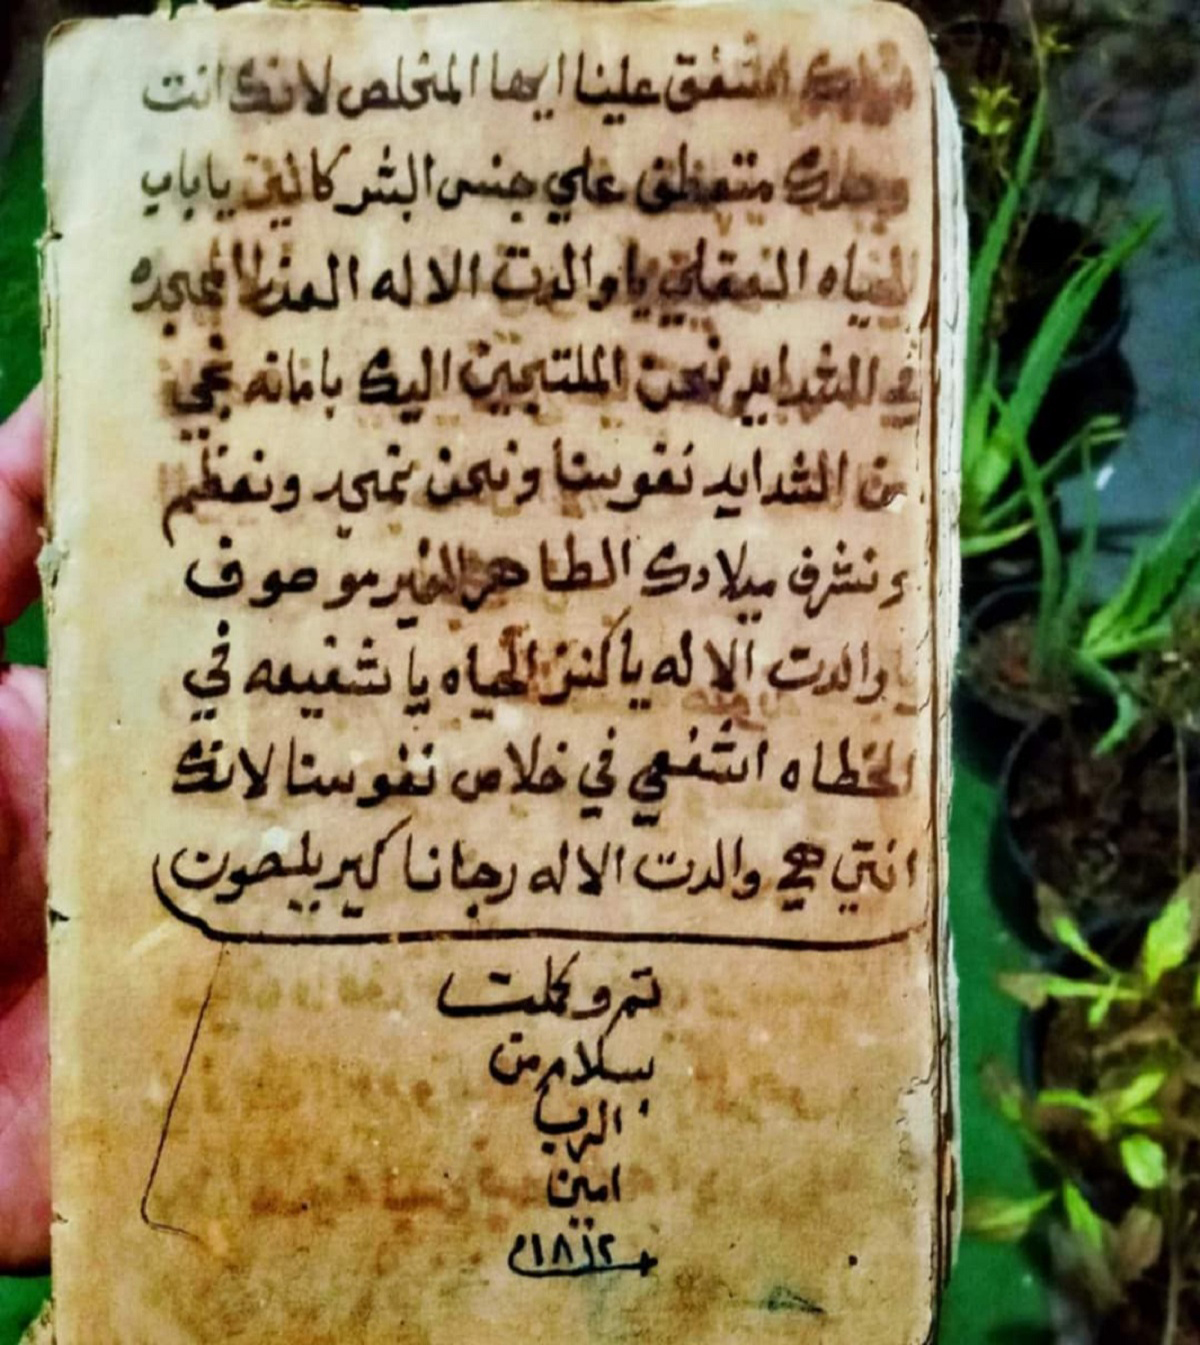 اشفق علينا ايها المخلص لانك انت
وحدك متعطف علي جنس البشر كاليق يا باب
الحياه العقلي يا والدت الاله العذرا المجده
في الشدايد نحن الملتجين اليك بامانه نجي
من الشدايد نفوسنا ونحن نمجد ونعظم
ونشرف ميلادك الطاهر الغير موصوف
يا والدت الاله يا كنز الحياه يا شفيعه في
الخطاه اشفعي في خلاص نفوسنا لانك
انتي هي والدت الاله رجانا كيريليصون
تم وكملت
بسلام من
الرب
امين